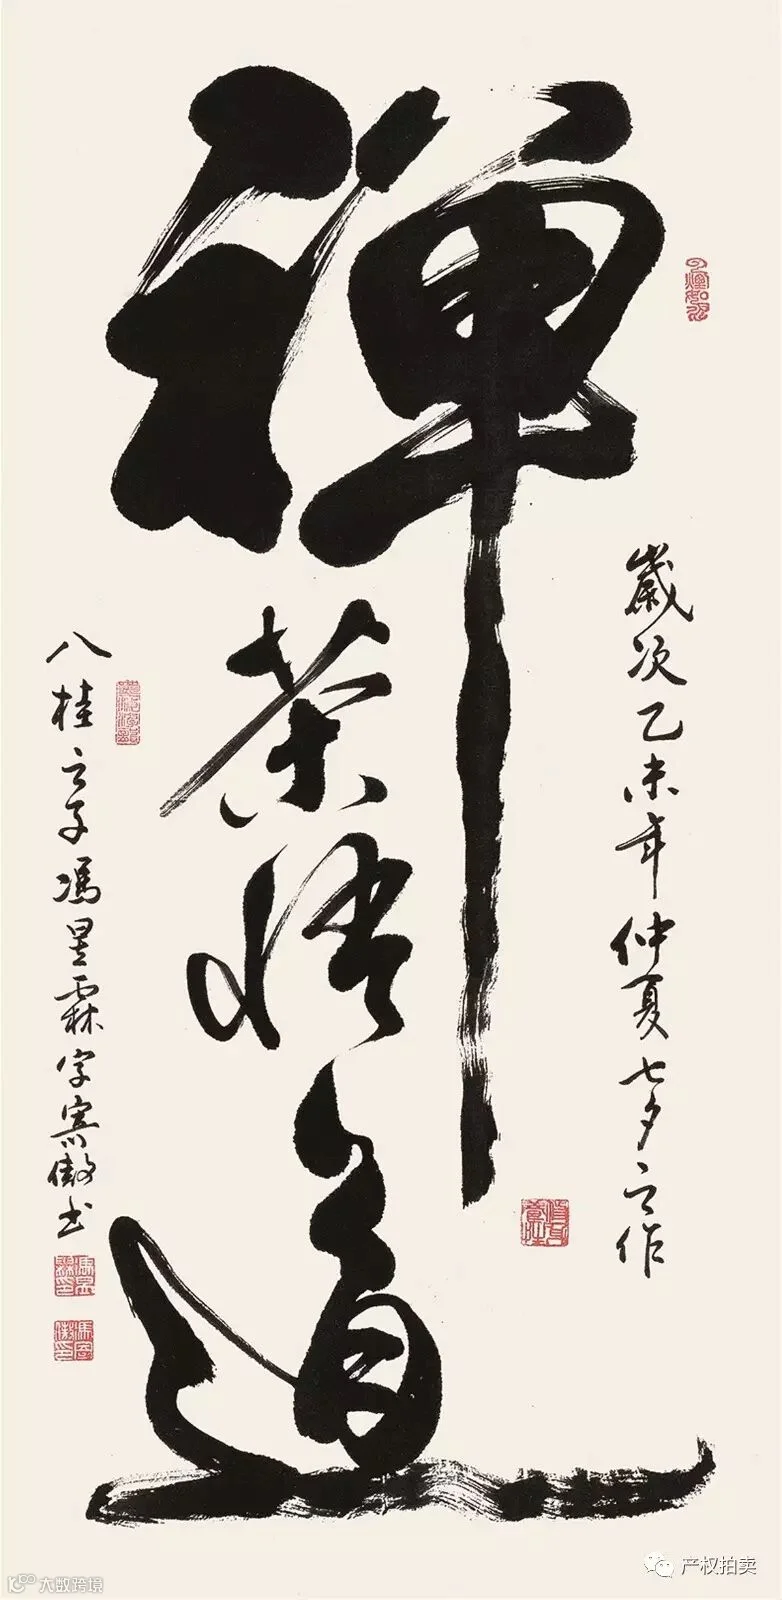 禅茶悟道
歲次乙未年仲夏七夕之作
八桂之子馮昱霖字寒傲书
产权拍卖
大数跨境